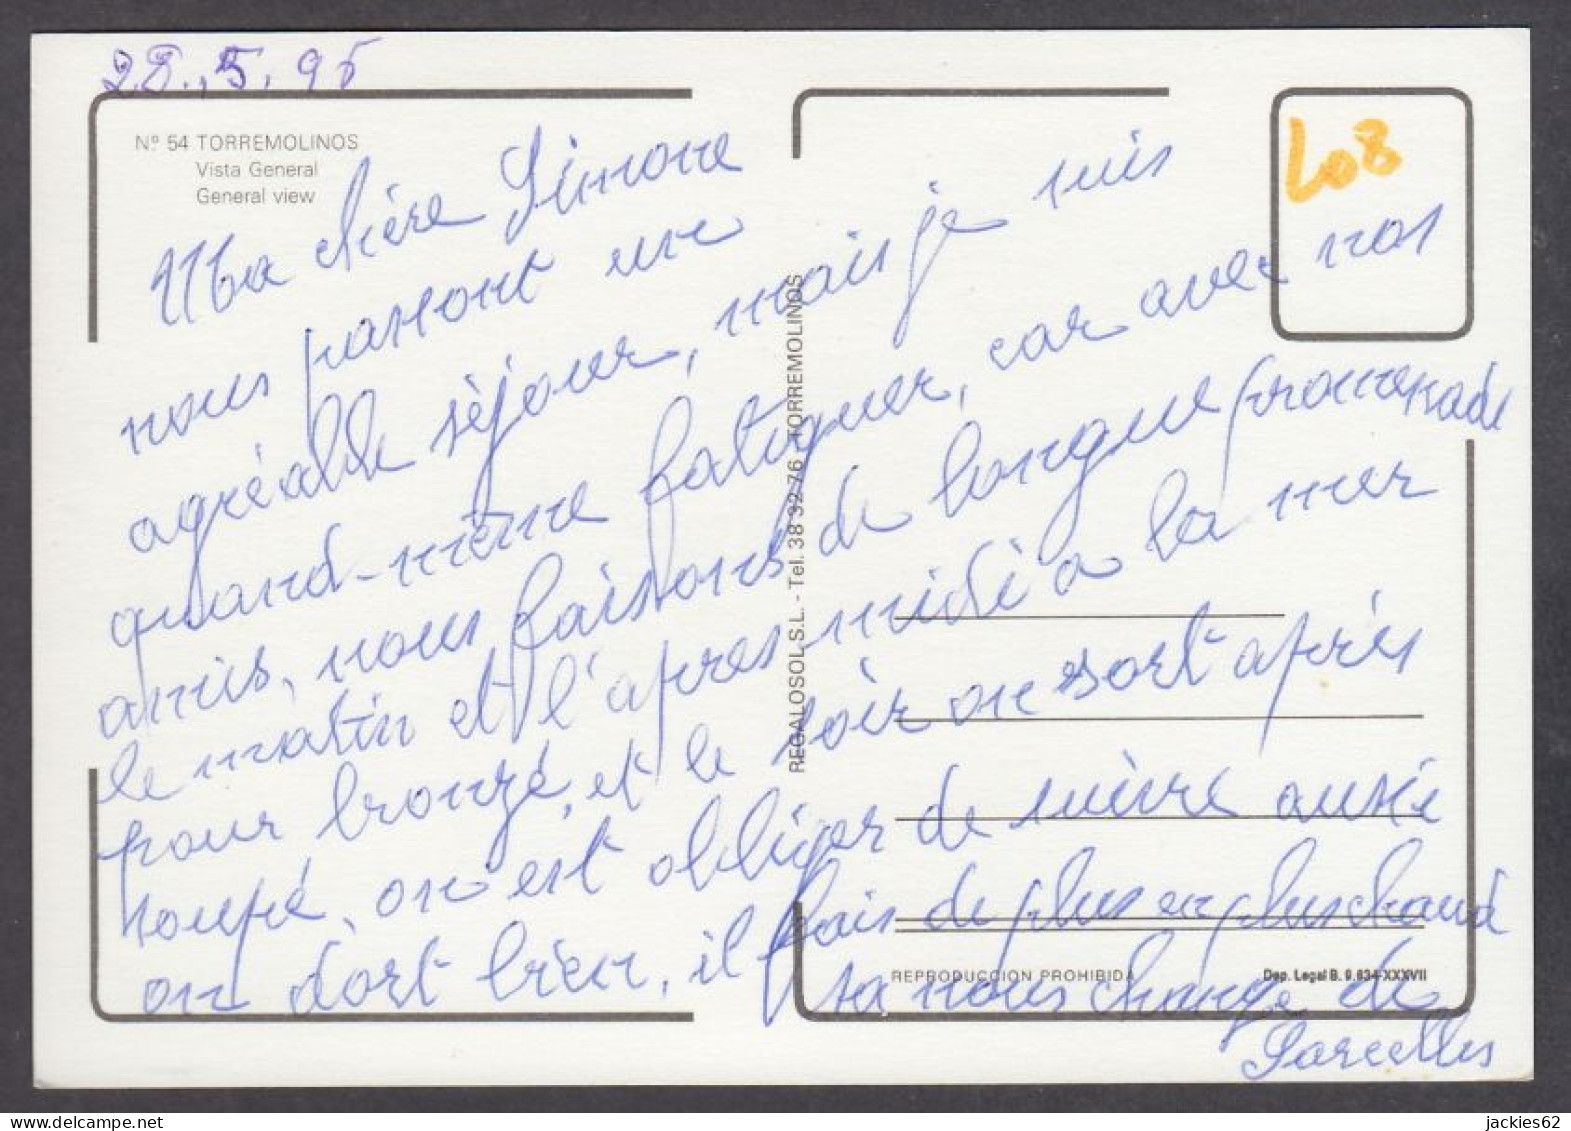 28.5.95
Nº 54 TORREMOLINOS
Vista General
General view
L08
Ma chère Simone
nous passont un
agréable séjour, mais je suis
quand-même fatiguer, car avec nos
amis, nous faisons de longue promenade
le matin et l'apres-midi a la mer
pour bronzé, et le soir on sort après
soupé, on est obliger de suivre aussi
on dort bien, il fais de plus en plus chaud
sa nous change de
Sarcelles
REGALOSOL S.L. - Tel. 38 32 76 TORREMOLINOS
REPRODUCCION PROHIBIDA
Dep. Legal B. 9.634-XXXVII
jackies62